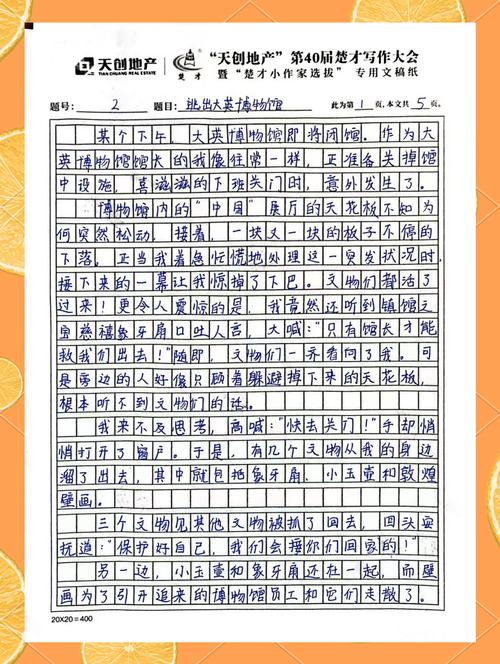 天创地产
TIAN CHUANG REAL ESTATE
楚才
“天创地产”第40届楚才写作大会
暨“楚才小作家选拔”专用文稿纸
题号： 2 题目： 逃出大英博物馆 此为第1页，本文共5页。
某个下午，大英博物馆即将闭馆。作为大
英博物馆馆长的我像往常一样，正准备关掉馆
中设施，喜滋滋的下班关门时，意外发生了。
博物馆内的“中国”展厅的天花板不知为
何突然松动，接着，一块又一块的板子不停的
下落。正当我着急忙慌地处理这一突发状况时，
接下来的一幕让我惊掉了下巴。文物们都活了
过来！更令人震惊的是，我竟然还听到镇馆之
宝慈禧象牙扇口吐人言，大喊：“只有馆长才能
救我们出去！”随即，文物们一齐看向了我。可
是旁边的人好像只顾着躲避掉下来的天花板，
根本听不到文物们的话。
我来不及思考，高喊：“快去关门！”手却悄
悄打开了窗户。于是，有几个文物从我的身边
溜了出去，其中就包括象牙扇、小玉壶和敦煌
壁画。
三个文物见其他文物被抓了回去，回头要
抗道：“保护好自己，我们会接你们回家的！”
另一边，小玉壶和象牙扇还在一起，而壁
画为了引开追来的博物馆员工和它们走散了。
20X20=400